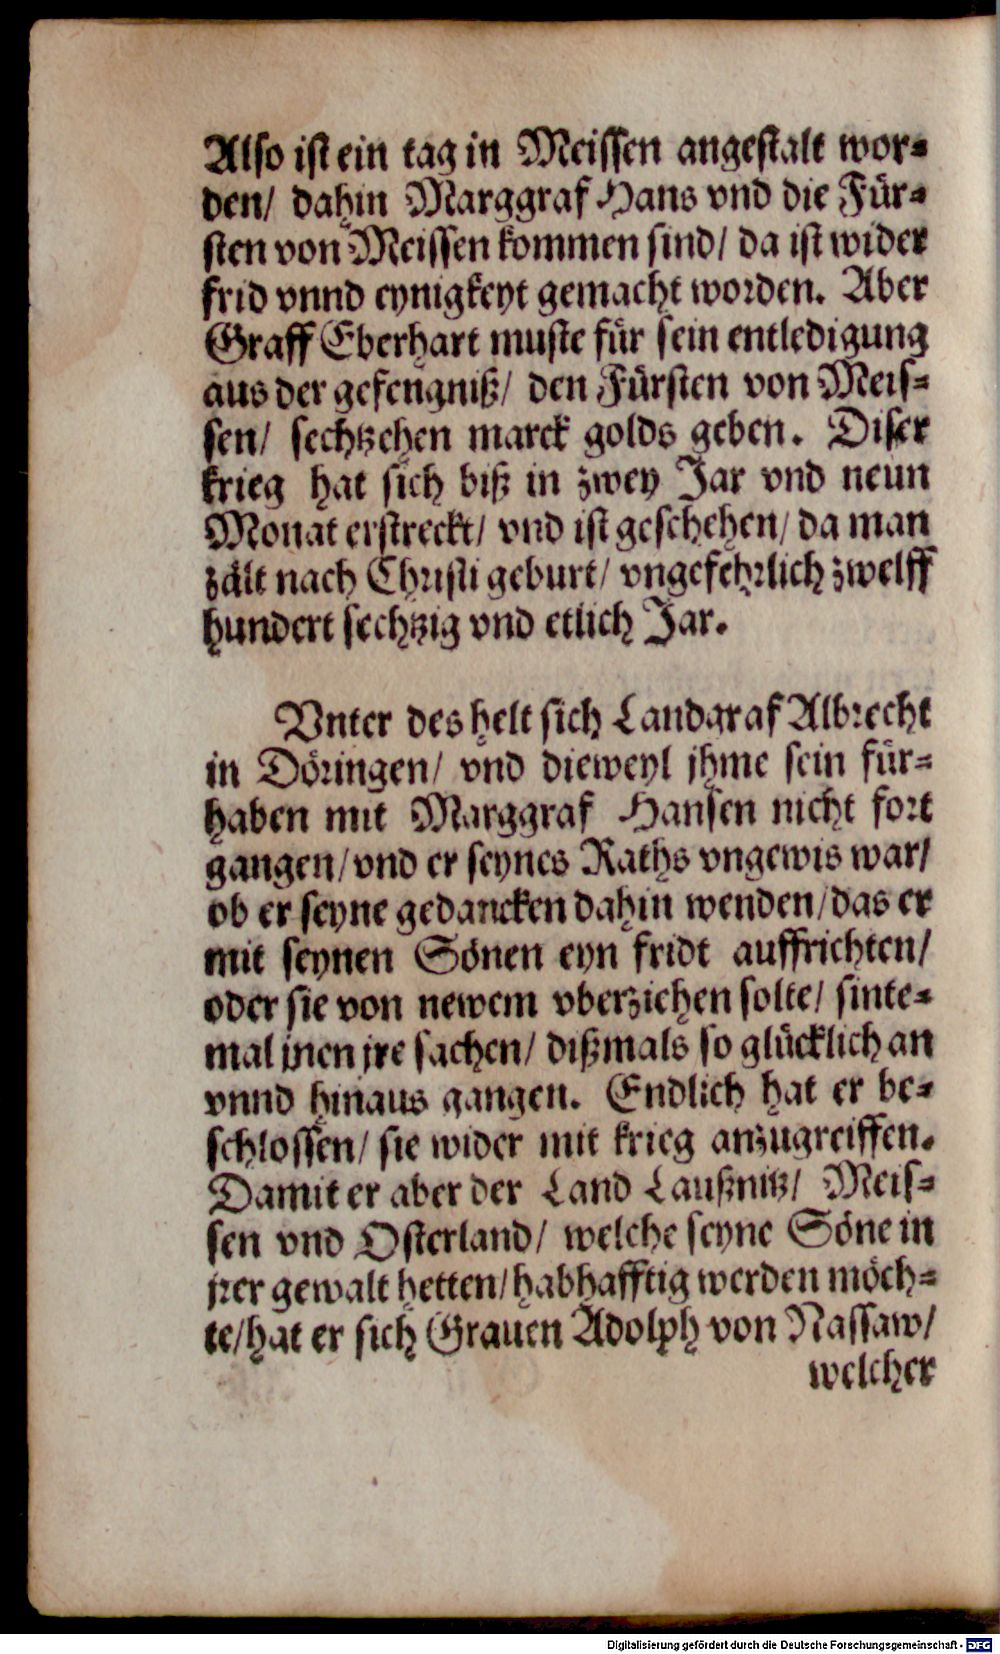 Also ist ein tag in Meissen angestalt wor-
den/ dahin Marggraf Hans vnd die Für-
sten von Meissen kommen sind/ da ist wider
frid vnnd eynigkeyt gemacht worden. Aber
Graff Eberhart muste für sein entledigung
aus der gefengniß/ den Fürsten von Meis-
sen/ sechtzehen marck golds geben. Diser
krieg hat sich biß in zwey Jar vnd neun
Monat erstreckt/ vnd ist geschehen/ da man
zält nach Christi geburt/ vngefehrlich zwelff
hundert sechtzig vnd etlich Jar.
Vnter des helt sich Landgraf Albrecht
in Döringen/ vnd dieweyl jhme sein für-
haben mit Marggraf Hansen nicht fort
gangen/ vnd er seynes Raths vngewis war/
ob er seyne gedancken dahin wenden/ das er
mit seynen Sönen eyn fridt auffrichten/
oder sie von newem vberziehen solte/ sinte-
mal jnen jre sachen/ dißmals so glücklich an
vnnd hinaus gangen. Endlich hat er be-
schlossen/ sie wider mit krieg anzugreiffen.
Damit er aber der Land Laußnitz/ Meis-
sen vnd Osterland/ welche seyne Söne in
jrer gewalt hetten/ habhafftig werden möch-
te/ hat er sich Grauen Adolph von Nassaw/
welcher
Digitalisierung gefördert durch die Deutsche Forschungsgemeinschaft - DFG